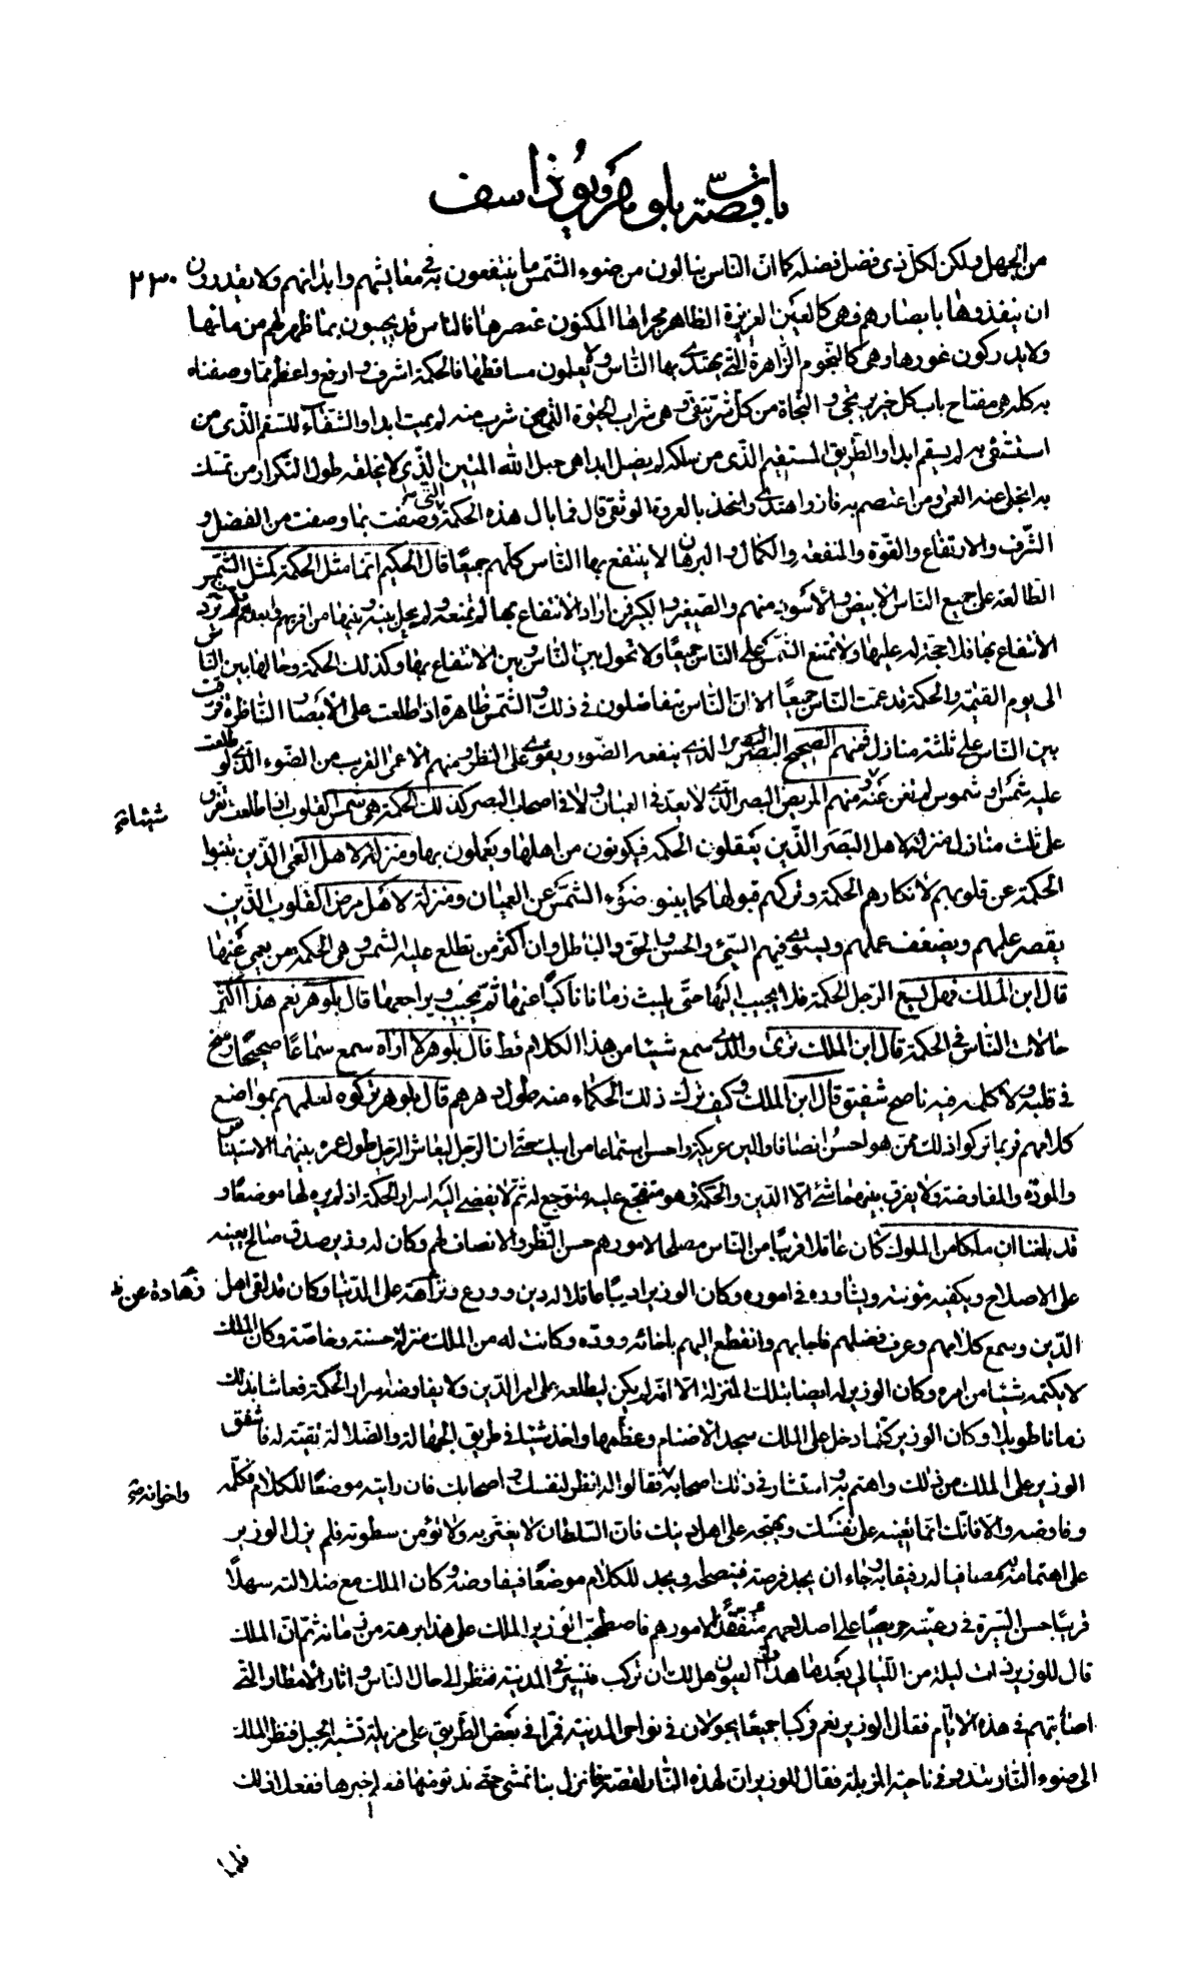 باب قصّة بلوهر و يوذاسف
٢٣٠
من الجهل ولكن لكل ذى فضل فضله كما انّ الناس ينالون من ضوء الشمس ما ينتفعون به فى معايشهم وابدانهم ولا يقدرون
ان ينفذوها بابصارهم فهى كالعين الغزيرة الظاهر مجراها المكنون عنصرها فالناس قد يجيبون بما ظهر لهم من مائها
ولا يدركون غورها وهى كالنجوم الزّاهرة الّتى يهتدى بها النّاس ولا يعلمون مساقطها فالحكمة اشرف وارفع واعظم ممّا وصفناه
به كله هى مفتاح باب كل خير يرتجى والنّجاة من كلّ شرّ يتّقى وهى شراب الحيوة الّتى من شرب منه لم يمت ابدا والشّفاء للسقم الّذى من
استشفى به لم يسقم ابدا والطّريق المستقيم الّذى من سلكه لم يضل ابدا هى حبل اللّه المتين الّذى لا يخلقه طول التّكرار من تمسّك
به انجلى عنه العمى ومن اعتصم به فاز واهتدى واخذ بالعروة الوثقى قال فما بال هذه الحكمة الّتى وصفت بما وصفت من الفضل و
الشّرف والارتفاع والقوّة والمنفعة والكمال والبرهان لا ينتفع بها النّاس كلّهم جميعًا قال الحكيم انّما مثل الحكمة كمثل الشّمس
الطالعة على جميع النّاس الابيض والاسود منهم والصّغير والكبير فمن اراد الانتفاع بها لم تمنعه ولم يحل بينه وبينها من اقربهم وابعدهم ومن لم يرد
الانتفاع بها فلا حجّة له عليها ولا تمنع الشّمس على النّاس جميعًا ولا تحول بين النّاس وبين الانتفاع بها وكذلك الحكمة وحالها بين النّاس
الى يوم القيمة والحكمة قد عمّت النّاس جميعًا الا انّ النّاس يتفاضلون فى ذلك والشّمس ظاهرة اذا طلعت على الابصار النّاظرة فرّقت
بين النّاس على ثلثة منازل فمنهم الصّحيح البصر الّذى ينفعه الضّوء ويقوى على النظر ومنهم الاعمى القريب من الضّوء الّذى لو طلعت
عليه شمس او شموس لم تغن عنه ومنهم المريض البصر الّذى لا يعدّ فى العميان ولا فى اصحاب البصر كذلك الحكمة هى شمس القلوب اذا طلعت تفرّق
على ثلث منازل منزلة لاهل البصر الّذين يعقلون الحكمة فيكونون من اهلها ويعملون بها ومنزلة لاهل العمى الّذين ينبوا
الحكمة عن قلوبهم لانكارهم الحكمة وتركهم قبولها كما ينبو ضوء الشّمس عن العميان ومنزلة لاهل مرض القلوب الّذين
يقصر علمهم ويضعف عملهم ويستوى فيهم السّيّئ والحسن والحق والباطل وان اكثر من تطلع عليه الشّمس وهى الحكمة من يعمى عنها
قال ابن الملك فهل يسع الرّجل الحكمة فلا يجيب اليها حتى يلبث زمانا ناكبًا عنها ثمّ يجيب ويراجعها قال بلوهر نعم هذا اكثر
حالات النّاس فى الحكمة قال ابن الملك ترى والدى سمع شيئا من هذا الكلام قط قال بلوهر لا اراه سمع سماعًا صحيحًا رسخ
فى قلبه ولا كلّمه فيه ناصح شفيق قال ابن الملك وكيف ترك ذلك الحكماء منه طول دهرهم قال بلوهر تركوه لعلمهم بمواضع
كلامهم فربما تركوا ذلك ممّن هو احسن انصافا والين عريكة واحسن استماعا من ابيك حتى ان الرّجل ليعاش الرّجل طول عمره بينهما الاستيناس
والمودّة والمفاوضة ولا يفرق بينهما شئ الّا الدّين والحكمة وهو متفجّع عليه متوجّع له ثمّ لا يفضى اليه اسرار الحكمة اذ لم يره لها موضعًا و
قد بلغنا ان ملكا من الملوك كان عاقلا قريبًا من النّاس مصلحا لامورهم حسن النّظر والانصاف لهم وكان له وزير صدق صالح يعينه
على الاصلاح ويكفيه مؤنته ويشاوره فى اموره وكان الوزير اديبًا عاقلا له دين وورع ونزاهة على الدّنيا وكان قد لقى اهل
الدّين وسمع كلامهم وعرف فضلهم فاجابهم وانقطع اليهم باخائه وودّه وكانت له من الملك منزلة حسنة وخاصّة وكان الملك
لا يكتمه شيئا من امره وكان الوزير له ايضا بتلك المنزلة الّا انّه لم يكن ليطلعه على امر الدّين ولا يفاوضه اسرار الحكمة فعاشا بذلك
زمانا طويلا وكان الوزير كلّما دخل على الملك سجد الاصنام وعظّمها واخذ شيئا فى طريق الجهالة والضّلالة تقيّة له فاشفق
الوزير على الملك من ذلك واهتم به واستشار فى ذلك اصحابه فقالوا له انظر لنفسك واصحابك فان رايته موضعًا للكلام فكلّمه
وفاوضه والا فانّك انّما تعينه على نفسك وتهيّجه على اهل دينك فانّ السّلطان لا يغترّ به ولا تؤمن سطوته فلم يزل الوزير
على اهتمامه به مصافيا له رفيقا به رجاء ان يجد فرصة فينصحه او يجد للكلام موضعًا فيفاوضه وكان الملك مع ضلالته سهلًا
قريبًا حسن السّيرة فى رعيّته حريصًا على اصلاحهم متفقّدًا لامورهم فاصطحب الوزير الملك على هذا برهة من زمانه ثمّ انّ الملك
قال للوزير ذات ليلة من اللّيالى بعد ما هدأت العيون هل لك ان تركب فنسير فى المدينة فننظر الى حال النّاس واثار الامطار الّتى
اصابتهم فى هذه الايّام فقال الوزير نعم فركبا جميعًا يجولان فى نواحى المدينة فمرّا فى بعض الطّريق على مزبلة تشبه الجبل فنظر الملك
الى ضوء النّار تبدو فى ناحية المزبلة فقال للوزير ان لهذه النّار لقصّة فانزل بنا نمشى حتى ندنو منها فنعلم خبرها ففعلا ذلك
فلمّا